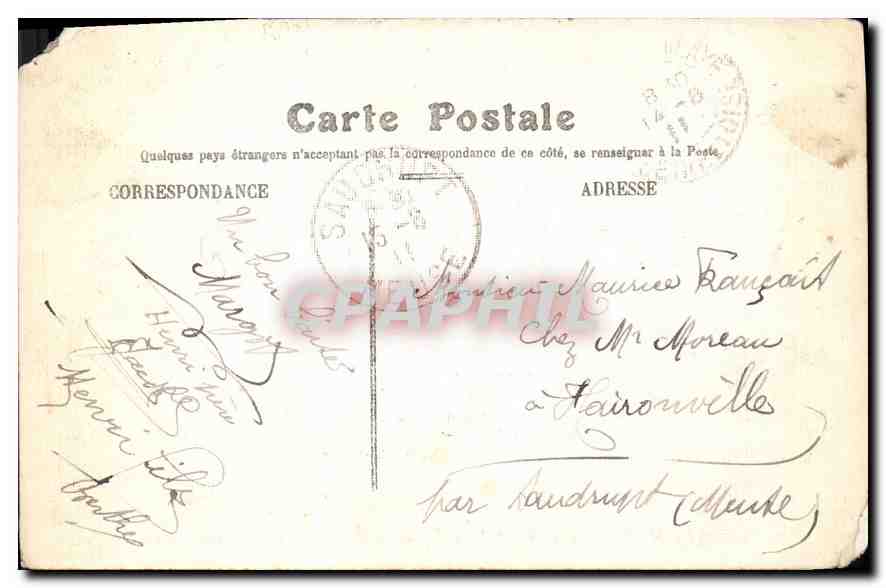 Carte Postale
Quelques pays étrangers n'acceptant pas la correspondance de ce côté, se renseigner à la Poste
CORRESPONDANCE
ADRESSE
SAUDRUPT
MEUSE
CPAPHIL
Un bon
Margot
Henri père
Henri fils
Monsieur Maurice Français
Chez Mr Moreau
à Haironville
par Saudrupt (Meuse)